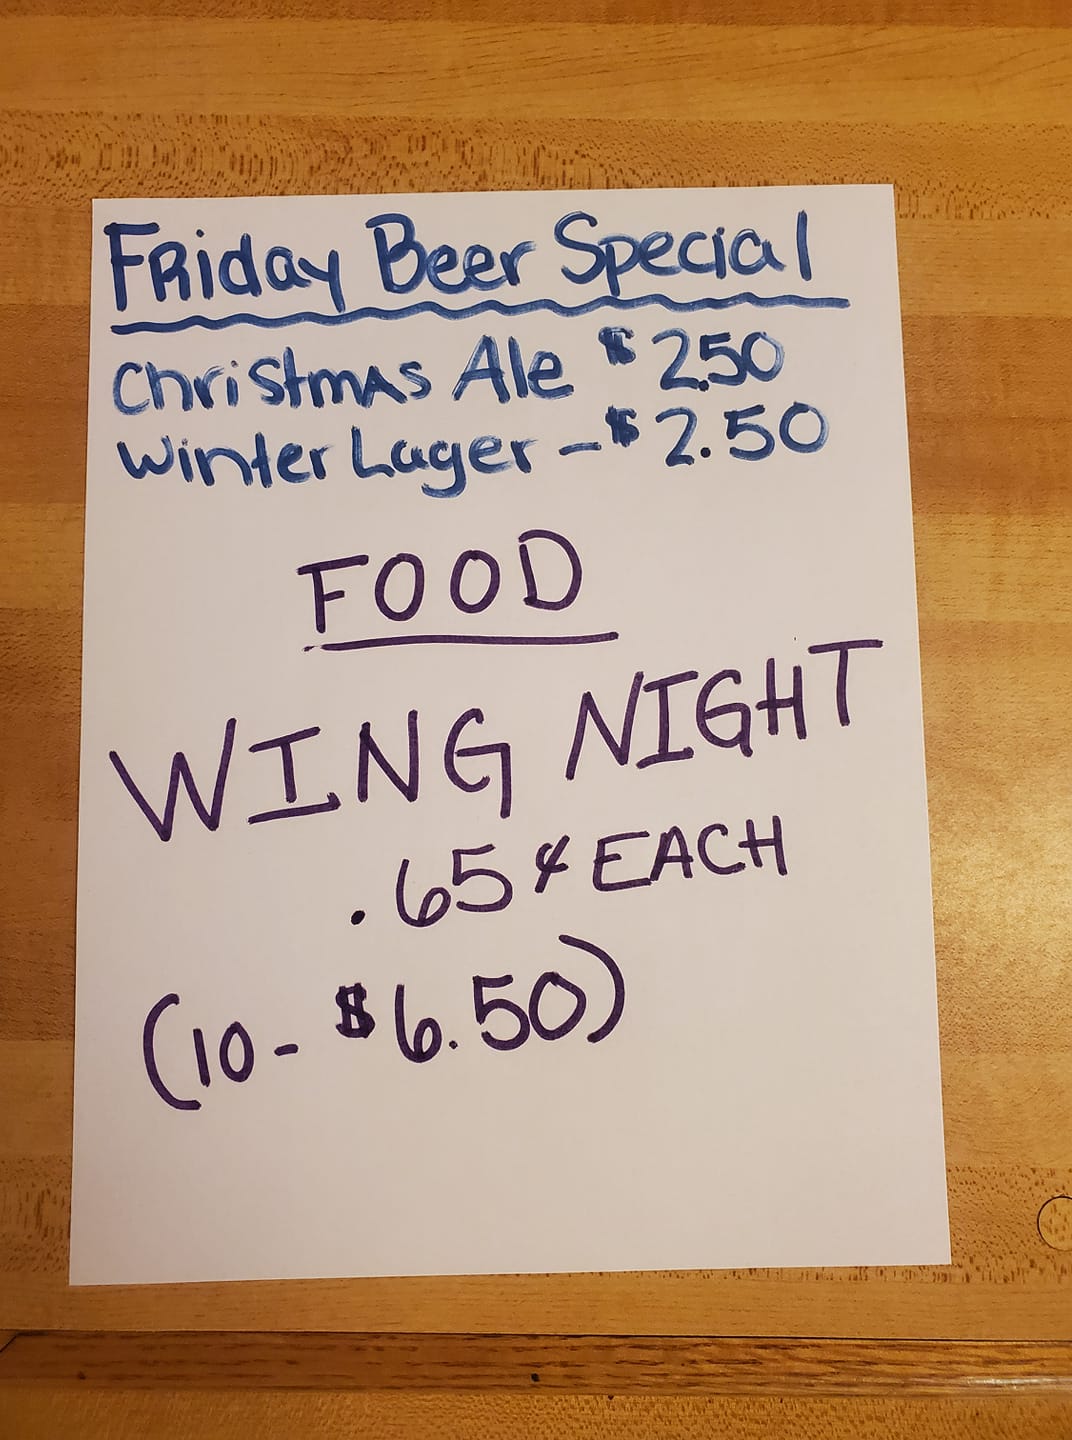 FRiday Beer Special
Christmas Ale $2.50
Winter Lager - $2.50
FOOD
WING NIGHT
.65¢ EACH
(10 - $6.50)